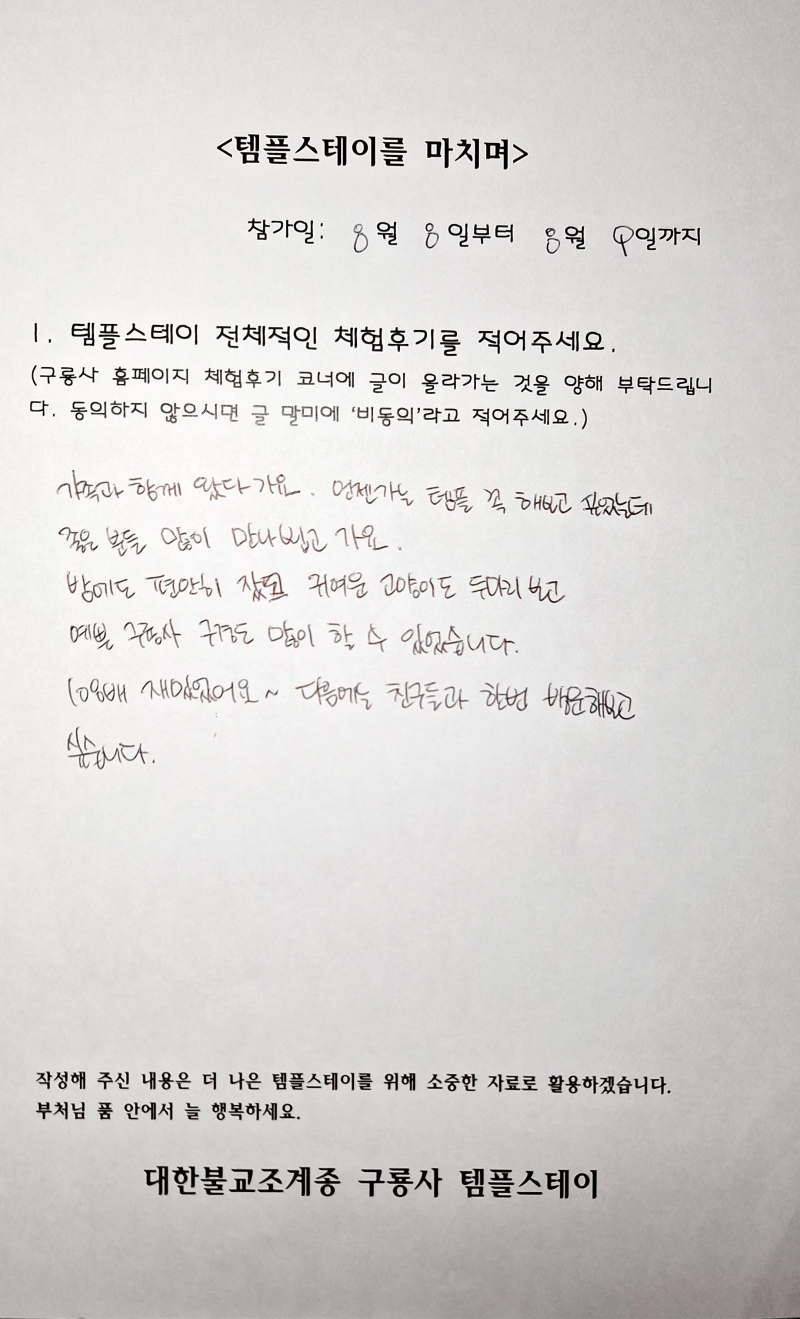 <템플스테이를 마치며>
참가일: 8월 8일부터 8월 9일까지
1. 템플스테이 전체적인 체험후기를 적어주세요.
(구룡사 홈페이지 체험후기 코너에 글이 올라가는 것을 양해 부탁드립니
다. 동의하지 않으시면 글 말미에 '비동의'라고 적어주세요.)
가족과 함께 왔다 가요. 언젠가는 템플 꼭 해보고 싶었는데
좋은 분들 많이 만나뵙고 가요.
밤에도 편안히 잤고 귀여운 고양이도 두마리 보고
예쁜 구룡사 구경도 많이 할 수 있었습니다.
108배 재밌었어요~ 다음에는 친구들과 한번 방문해보고
싶습니다.
작성해 주신 내용은 더 나은 템플스테이를 위해 소중한 자료로 활용하겠습니다.
부처님 품 안에서 늘 행복하세요.
대한불교조계종 구룡사 템플스테이